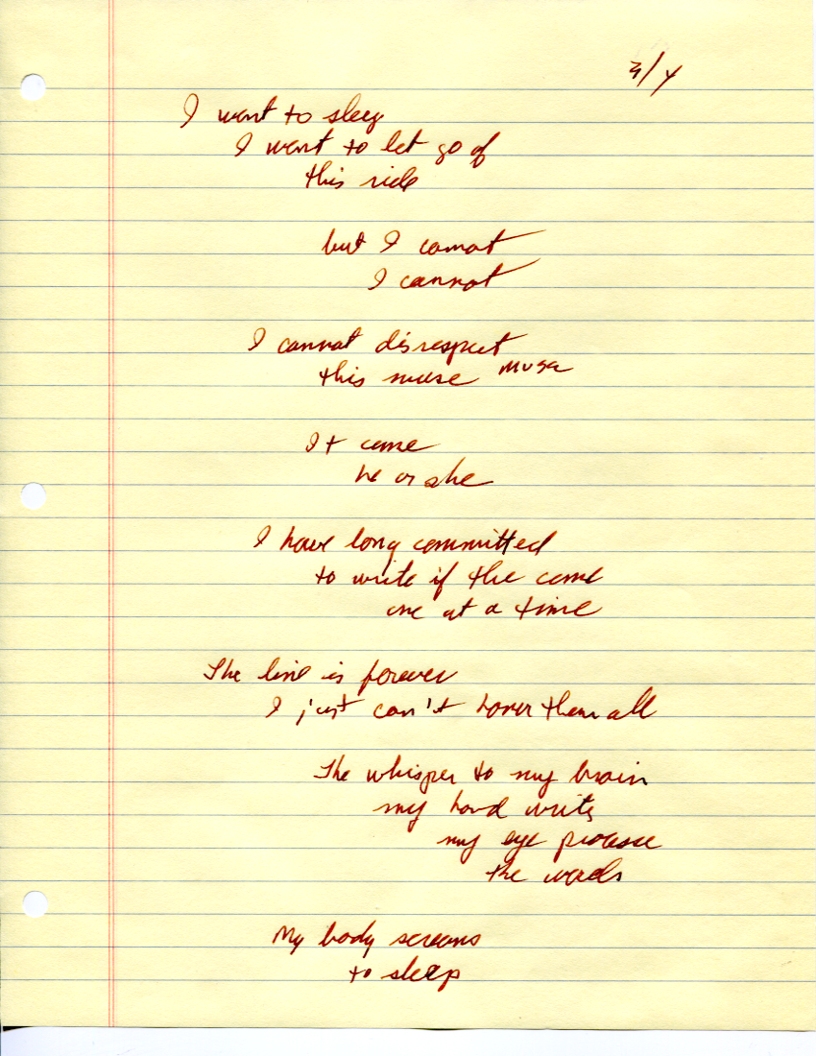 3/4
I want to sleep
I want to let go of
this ride
but I cannot
I cannot
I cannot disrespect
this muse muse
It came
he or she
I have long committed
to write if the come
one at a time
The line is forever
I just can't honor them all
The whisper to my brain
my hand write
my eye process
the words
My body screams
to sleep